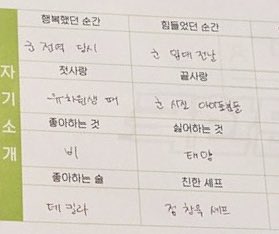 행복했던 순간 힘들었던 순간
군 전역 당시 군 입대 전날
첫사랑 끝사랑
유치원생 때 군 시절 아이돌분들
좋아하는 것 싫어하는 것
비 태양
좋아하는 술 친한 셰프
데킬라 정창욱 셰프
자기소개